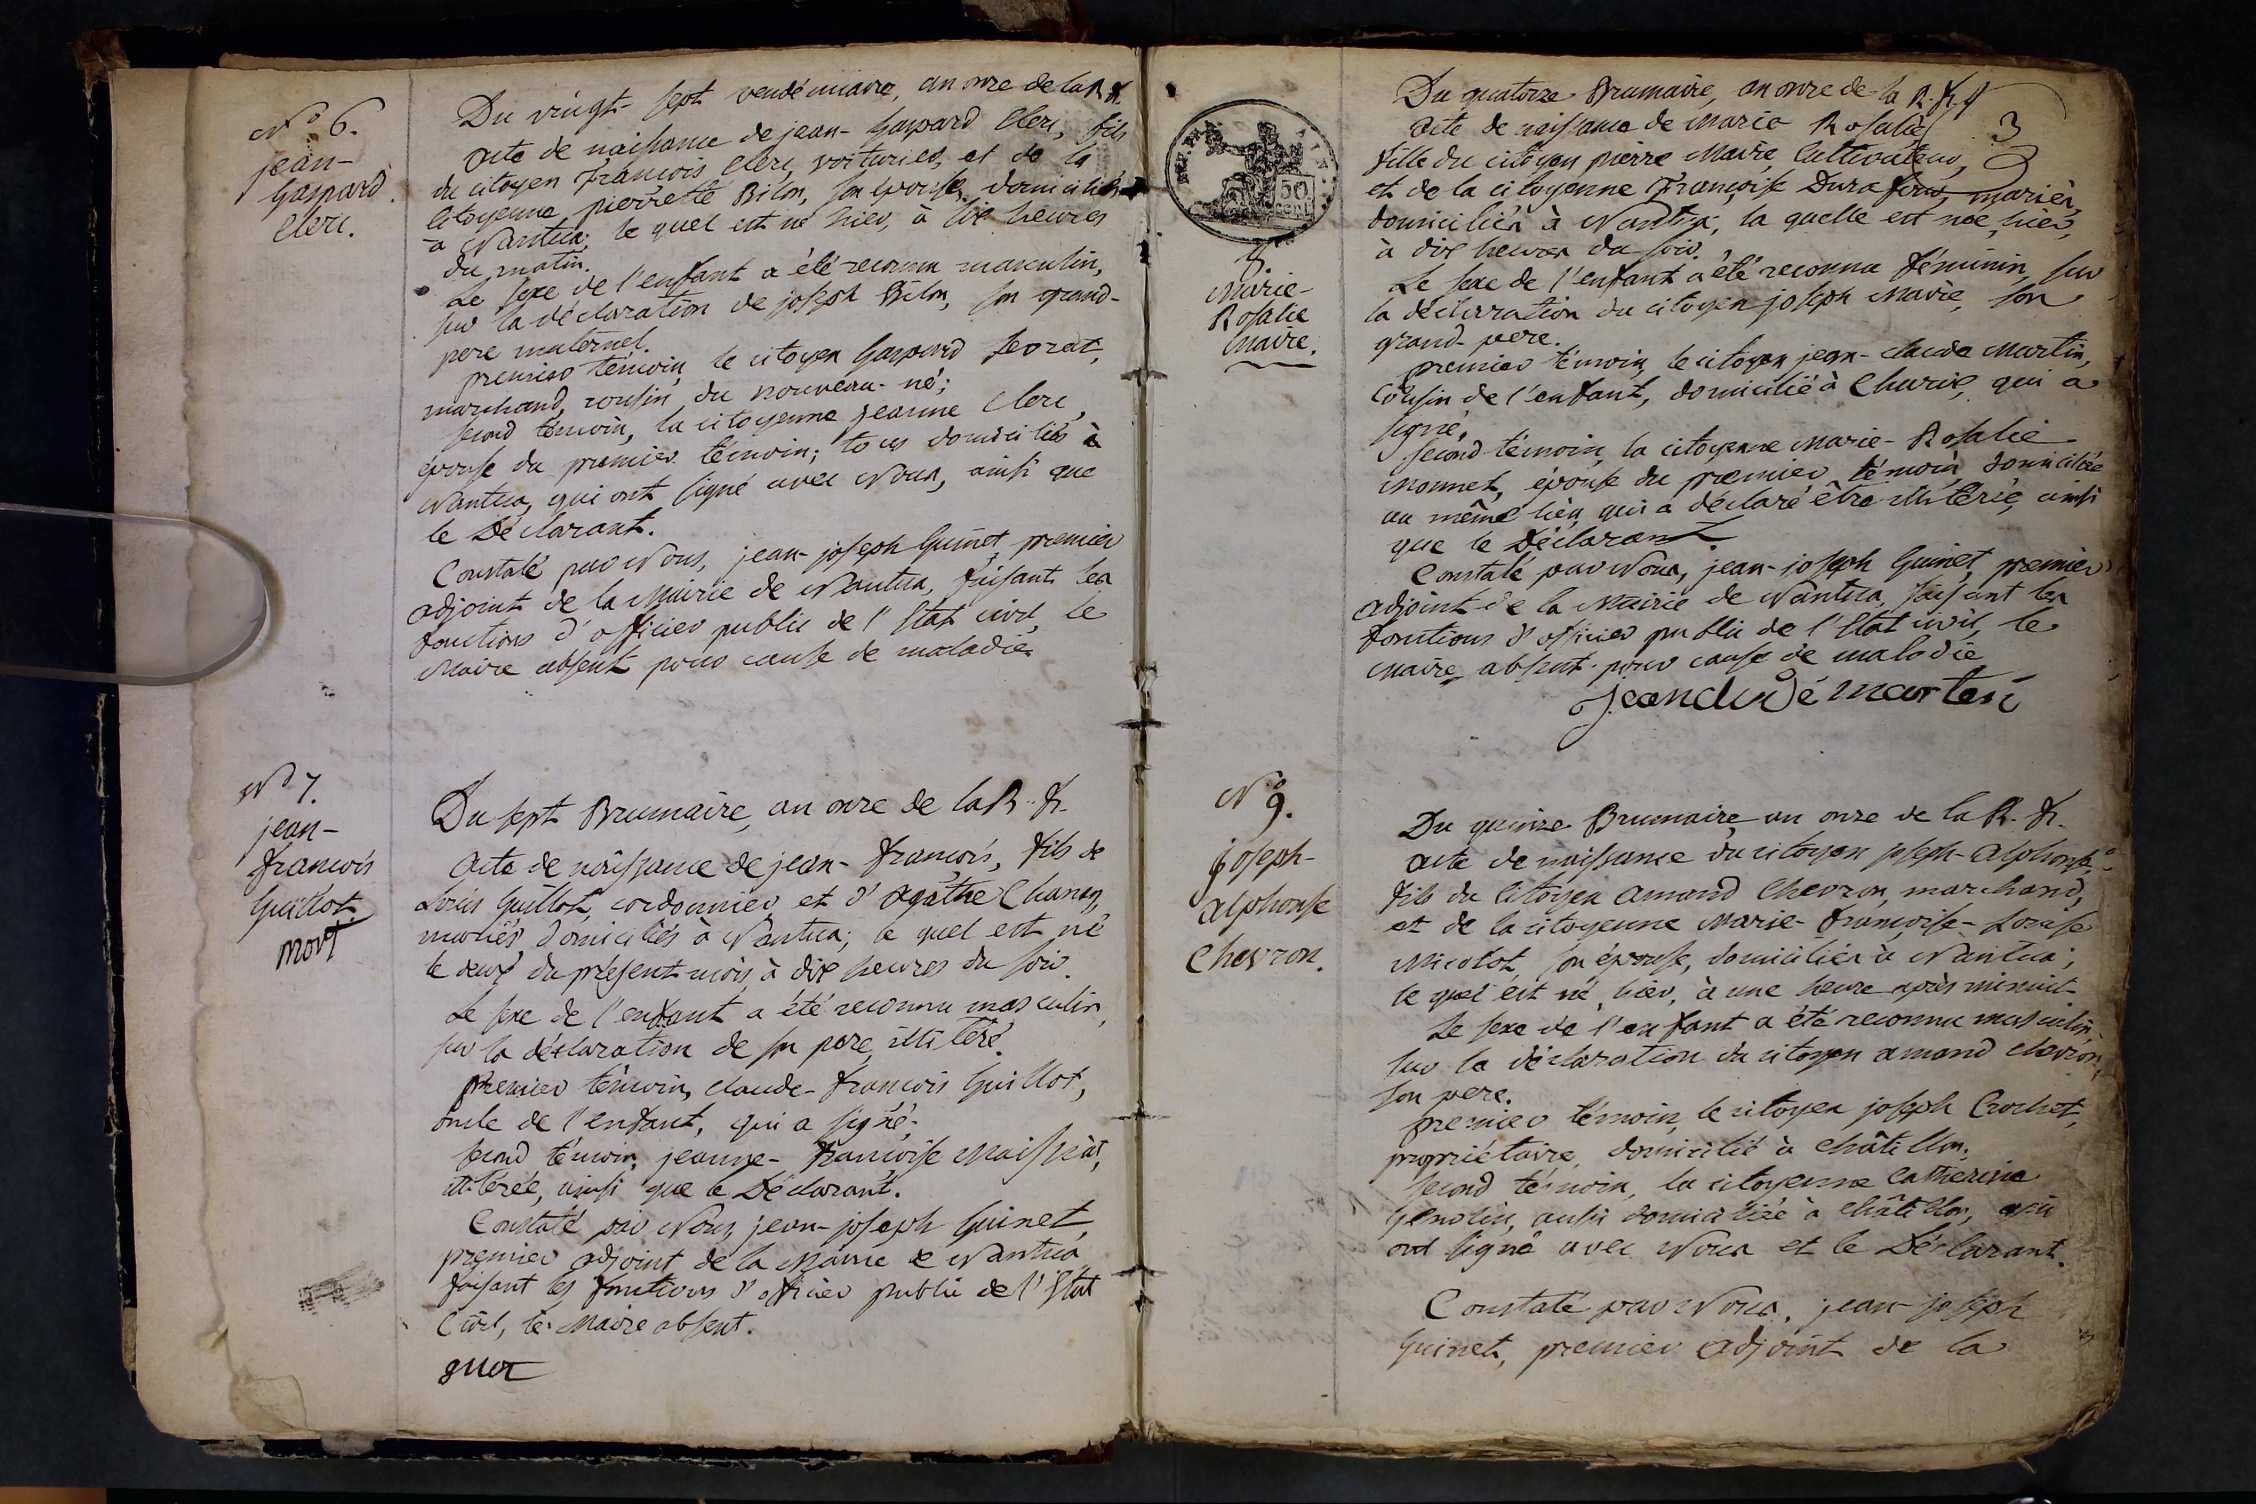 N° 6.
jean-
Gaspard
Clerc.
Du vingt-sept vendémiaire, an onze de la R. fr.
Acte de naissance de jean-Gaspard Clerc, fils
du citoyen françois Clerc, voiturier, et de la
Citoyenne pierrette Bilon, son épouse, domiciliés
à Nantua; le quel est né hier, à dix heures
du matin.
Le sexe de l'enfant a été reconnu masculin,
sur la déclaration de joseph Bilon, son grand-
pere maternel.
premier témoin, le citoyen Gaspard
marchand, cousin du nouveau-né;
second témoin, la citoyenne jeanne Clerc,
épouse du premier témoin; tous domiciliés à
Nantua, qui ont signé avec Nous, ainsi que
le Déclarant.
Constaté par Nous, jean-joseph Guinet, premier
adjoint de la Mairie de Nantua, faisant les
fonctions d'officier public de l'Etat civil, le
Maire absent pour cause de maladie.
N° 7.
jean-
françois
Guillot.
mort
Du sept Brumaire, an onze de la R. fr.
Acte de naissance de jean-françois, fils de
Louis Guillot, cordonnier et d'Agathe
mariés, domiciliés à Nantua; le quel est né
le deux du présent mois, à dix heures du soir.
Le sexe de l'enfant a été reconnu masculin,
sur la déclaration de son pere, illitéré.
Premier témoin, claude-françois Guillot,
oncle de l'enfant, qui a signé;
second témoin, jeanne-françoise Maissiat,
illitérée, ainsi que le Déclarant.
Constaté par Nous, jean-joseph Guinet,
premier adjoint de la Mairie de Nantua,
faisant les fonctions d'officier public de l'Etat
Civil, le Maire absent.
3
50
8.
Marie-
Rosalie
Maire.
Du quatorze Brumaire, an onze de la R. fr.
Acte de naissance de Marie Rosalie,
fille du citoyen pierre Maire, Cultivateur,
et de la citoyenne Françoise Durafour, mariés,
domiciliés à Nantua, la quelle est née, hier,
à dix heures du soir.
Le sexe de l'enfant a été reconnu féminin, sur
la déclaration du citoyen joseph Maire, son
grand-pere.
premier témoin, le citoyen jean-claude Martin,
Cousin de l'enfant, domicilié à Charix, qui a
signé.
second témoin, la citoyenne Marie-Rosalie
Monnet, épouse du premier témoin, domiciliée
au même lieu, qui a déclaré être illitérée, ainsi
que le Déclarant.
Constaté par Nous, jean-joseph Guinet, premier
adjoint de la Mairie de Nantua, faisant les
fonctions d'officier public de l'Etat civil, le
Maire absent pour cause de maladie
N° 9.
joseph-
alphonse
Chevron.
Du quinze Brumaire, an onze de la R. fr.
Acte de naissance du citoyen joseph-alphonse,
fils du Citoyen Amand Chevron, marchand,
et de la citoyenne Marie-françoise-Louise
Nicolot, son épouse, domiciliés à Nantua;
le quel est né, hier, à une heure après minuit.
Le sexe de l'enfant a été reconnu masculin,
sur la déclaration du citoyen amand chevron,
son pere.
premier témoin, le citoyen joseph Crochet,
propriétaire, domicilié à Châtillon;
second témoin, la citoyenne Catherine
aussi domiciliée à Châtillon, qui
ont signé avec Nous et le Déclarant.
Constaté par Nous, jean-joseph
Guinet, premier adjoint de la